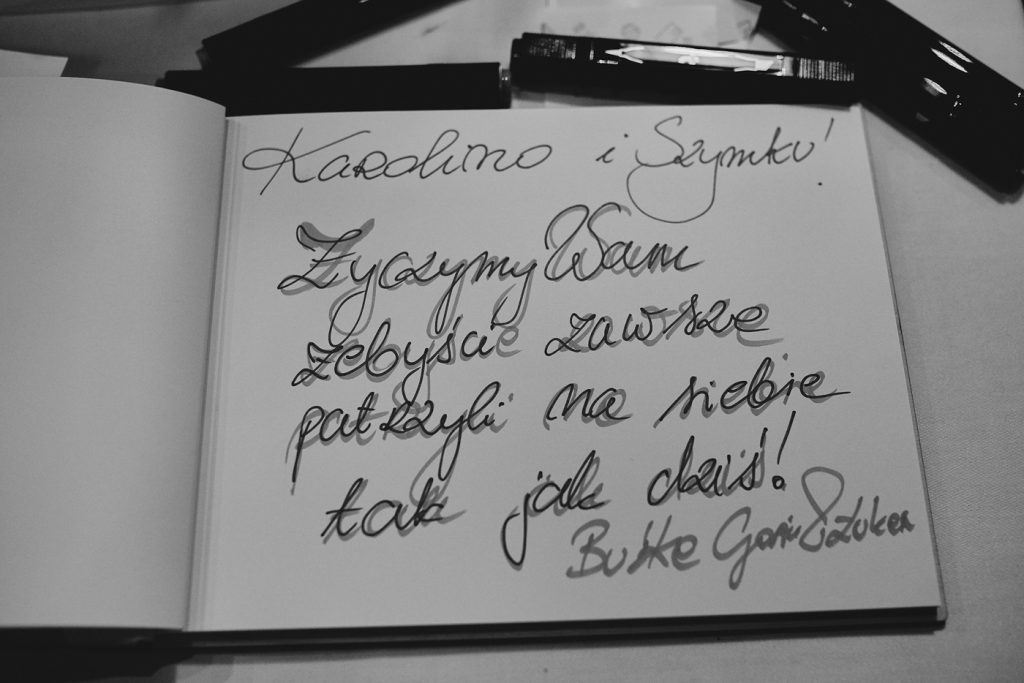 Karolino i Szymku!
Życzymy Wam
żebyście zawsze
patrzyli na siebie
tak jak dziś!